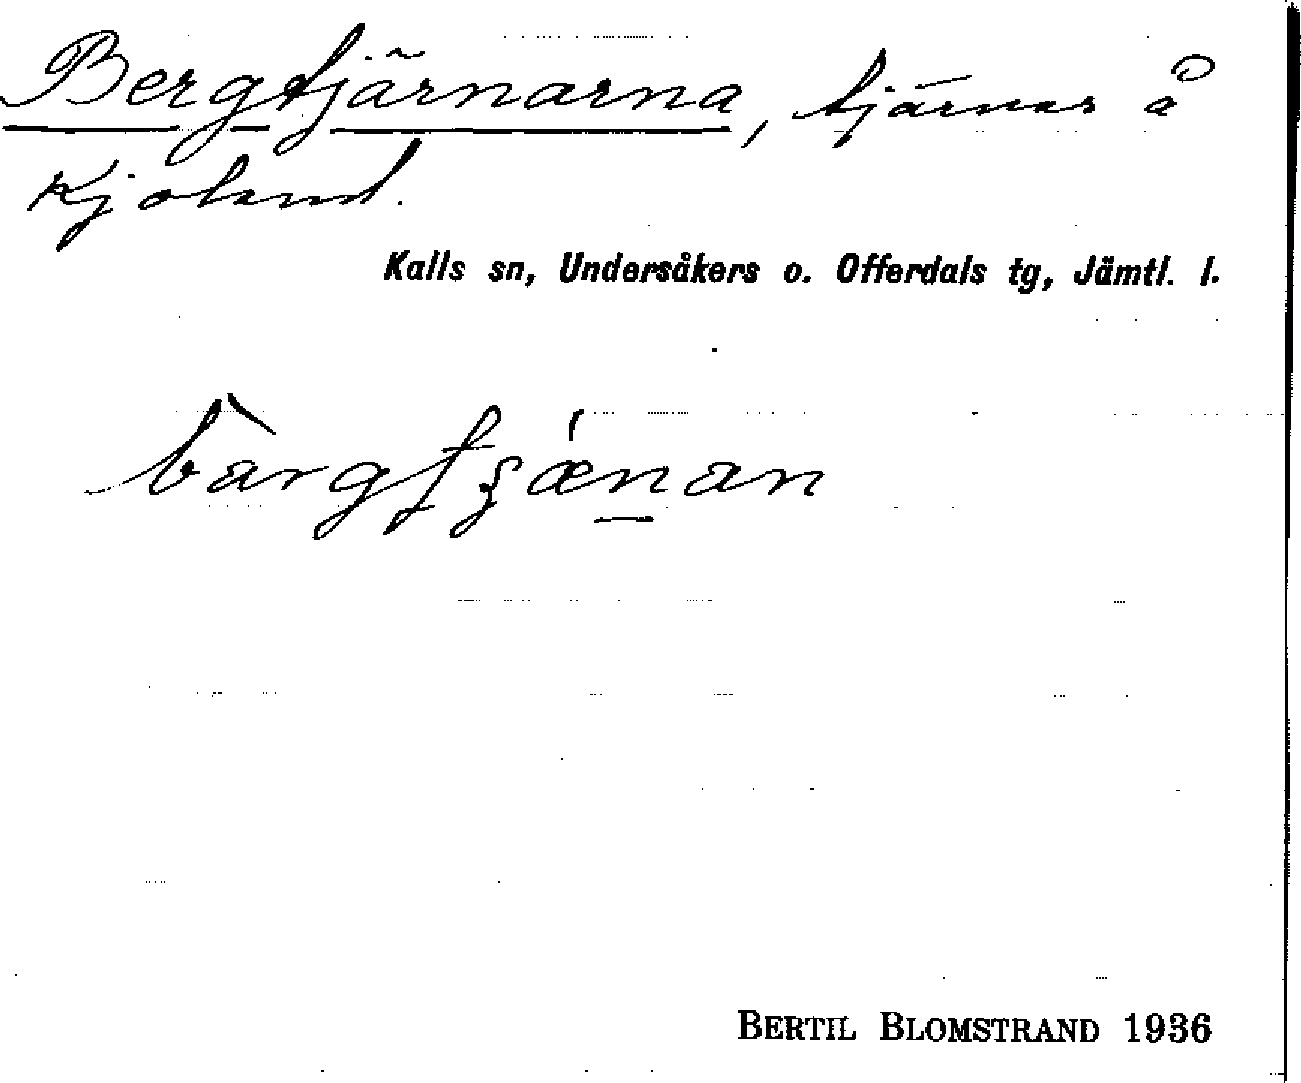 Bergtjärnarna, tjärnar å
Kjoland.
Kalls sn, Undersåkers o. Offerdals tg, Jämtl. l.
BERTIL BLOMSTRAND 1936